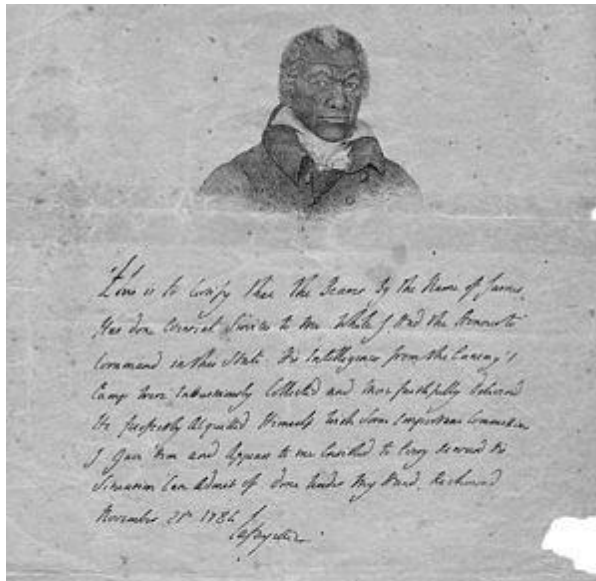 This is to Certify that the Bearer By the Name of James
Has done Essential Services to me While I Had the Honour to
Command in this State. His Intelligences from the Enemy's
Camp were Industriously Collected and More faithfully deliver'd
He perfectly Acquitted Himself with Some Important Commissions
I Gave him and Appears to me Entitled to Every Reward his
Situation Can Admit of. Done Under My Hand, Richmond
November 21st 1784
Lafayette